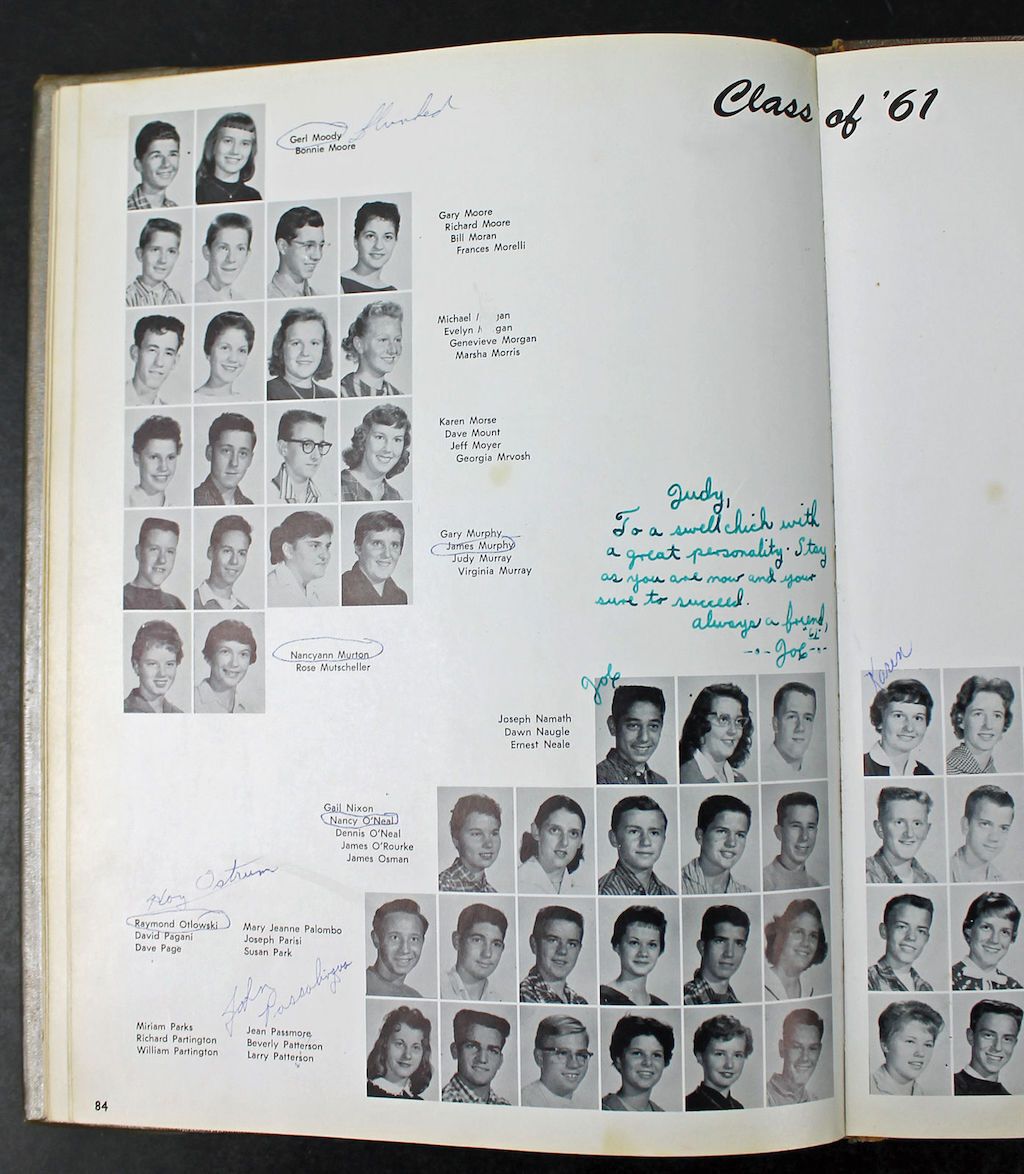 Class of '61
Gerl Moody
Bonnie Moore
Gary Moore
Richard Moore
Bill Moran
Frances Morelli
Michael
Evelyn
Genevieve Morgan
Marsha Morris
Karen Morse
Dave Mount
Jeff Moyer
Georgia Mrvosh
Gary Murphy
James Murphy
Judy Murray
Virginia Murray
Judy,
To a swell chick with
a great personality. Stay
as you are now and your
sure to succeed.
always a friend,
"61"
-·- Joe -·-
Nancyann Murton
Rose Mutscheller
Joe
Karen
Joseph Namath
Dawn Naugle
Ernest Neale
Gail Nixon
Nancy O'Neal
Dennis O'Neal
James O'Rourke
James Osman
Ostrum
Raymond Otlowski
David Pagani
Dave Page
Mary Jeanne Palombo
Joseph Parisi
Susan Park
John
Miriam Parks
Richard Partington
William Partington
Jean Passmore
Beverly Patterson
Larry Patterson
84